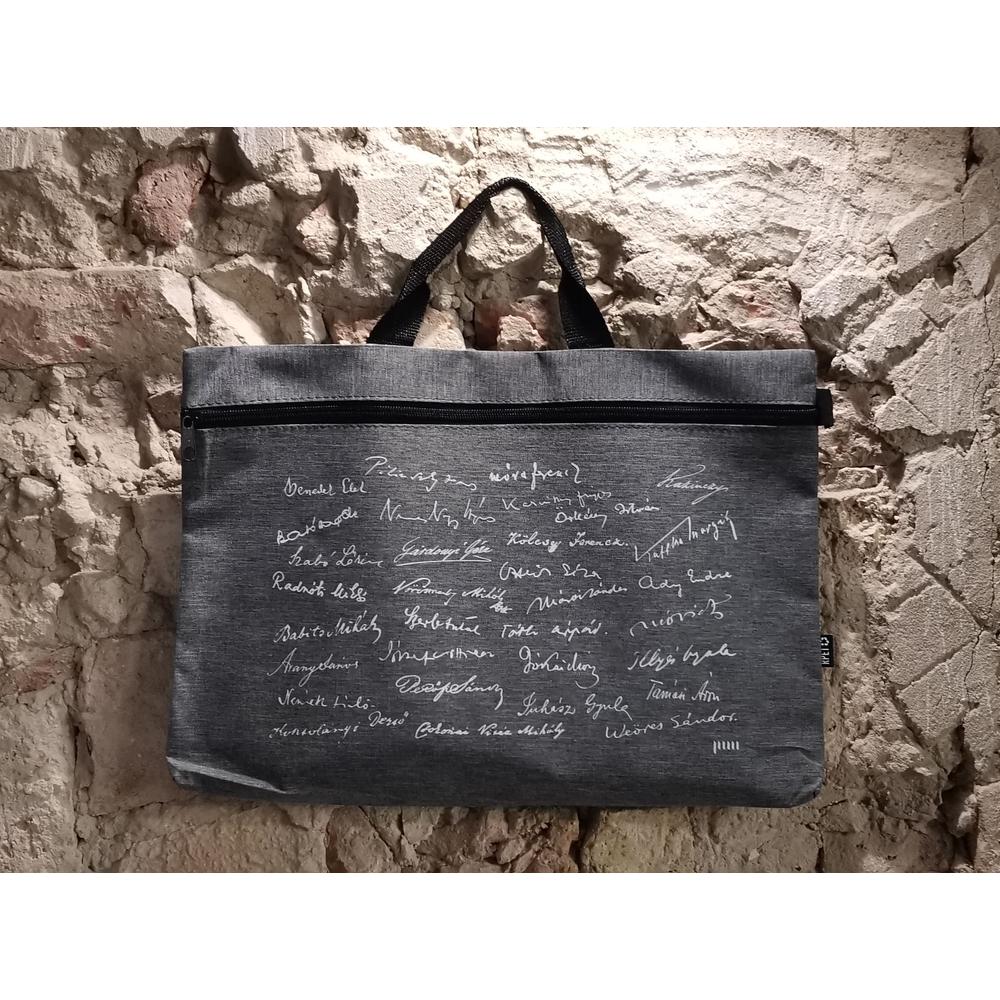 Pilinszky János Móra Ferenc Kazinczy
Benedek Elek
Nemes Nagy Ágnes Karinthy Frigyes
Örkény István
Kaffka Margit
Szabó Lőrinc Gárdonyi Géza Kölcsey Ferenc.
Radnóti Miklós Vörösmarty Mihály Márai Sándor Ady Endre
Babits Mihály Szerb Antal Tóth Árpád. Móricz
Arany János József Attila Jókai Mór Illyés Gyula
Petőfi Sándor Tamási Áron
Németh László Juhász Gyula
Kosztolányi Dezső Csokonai Vitéz Mihály Weöres Sándor.
RPET